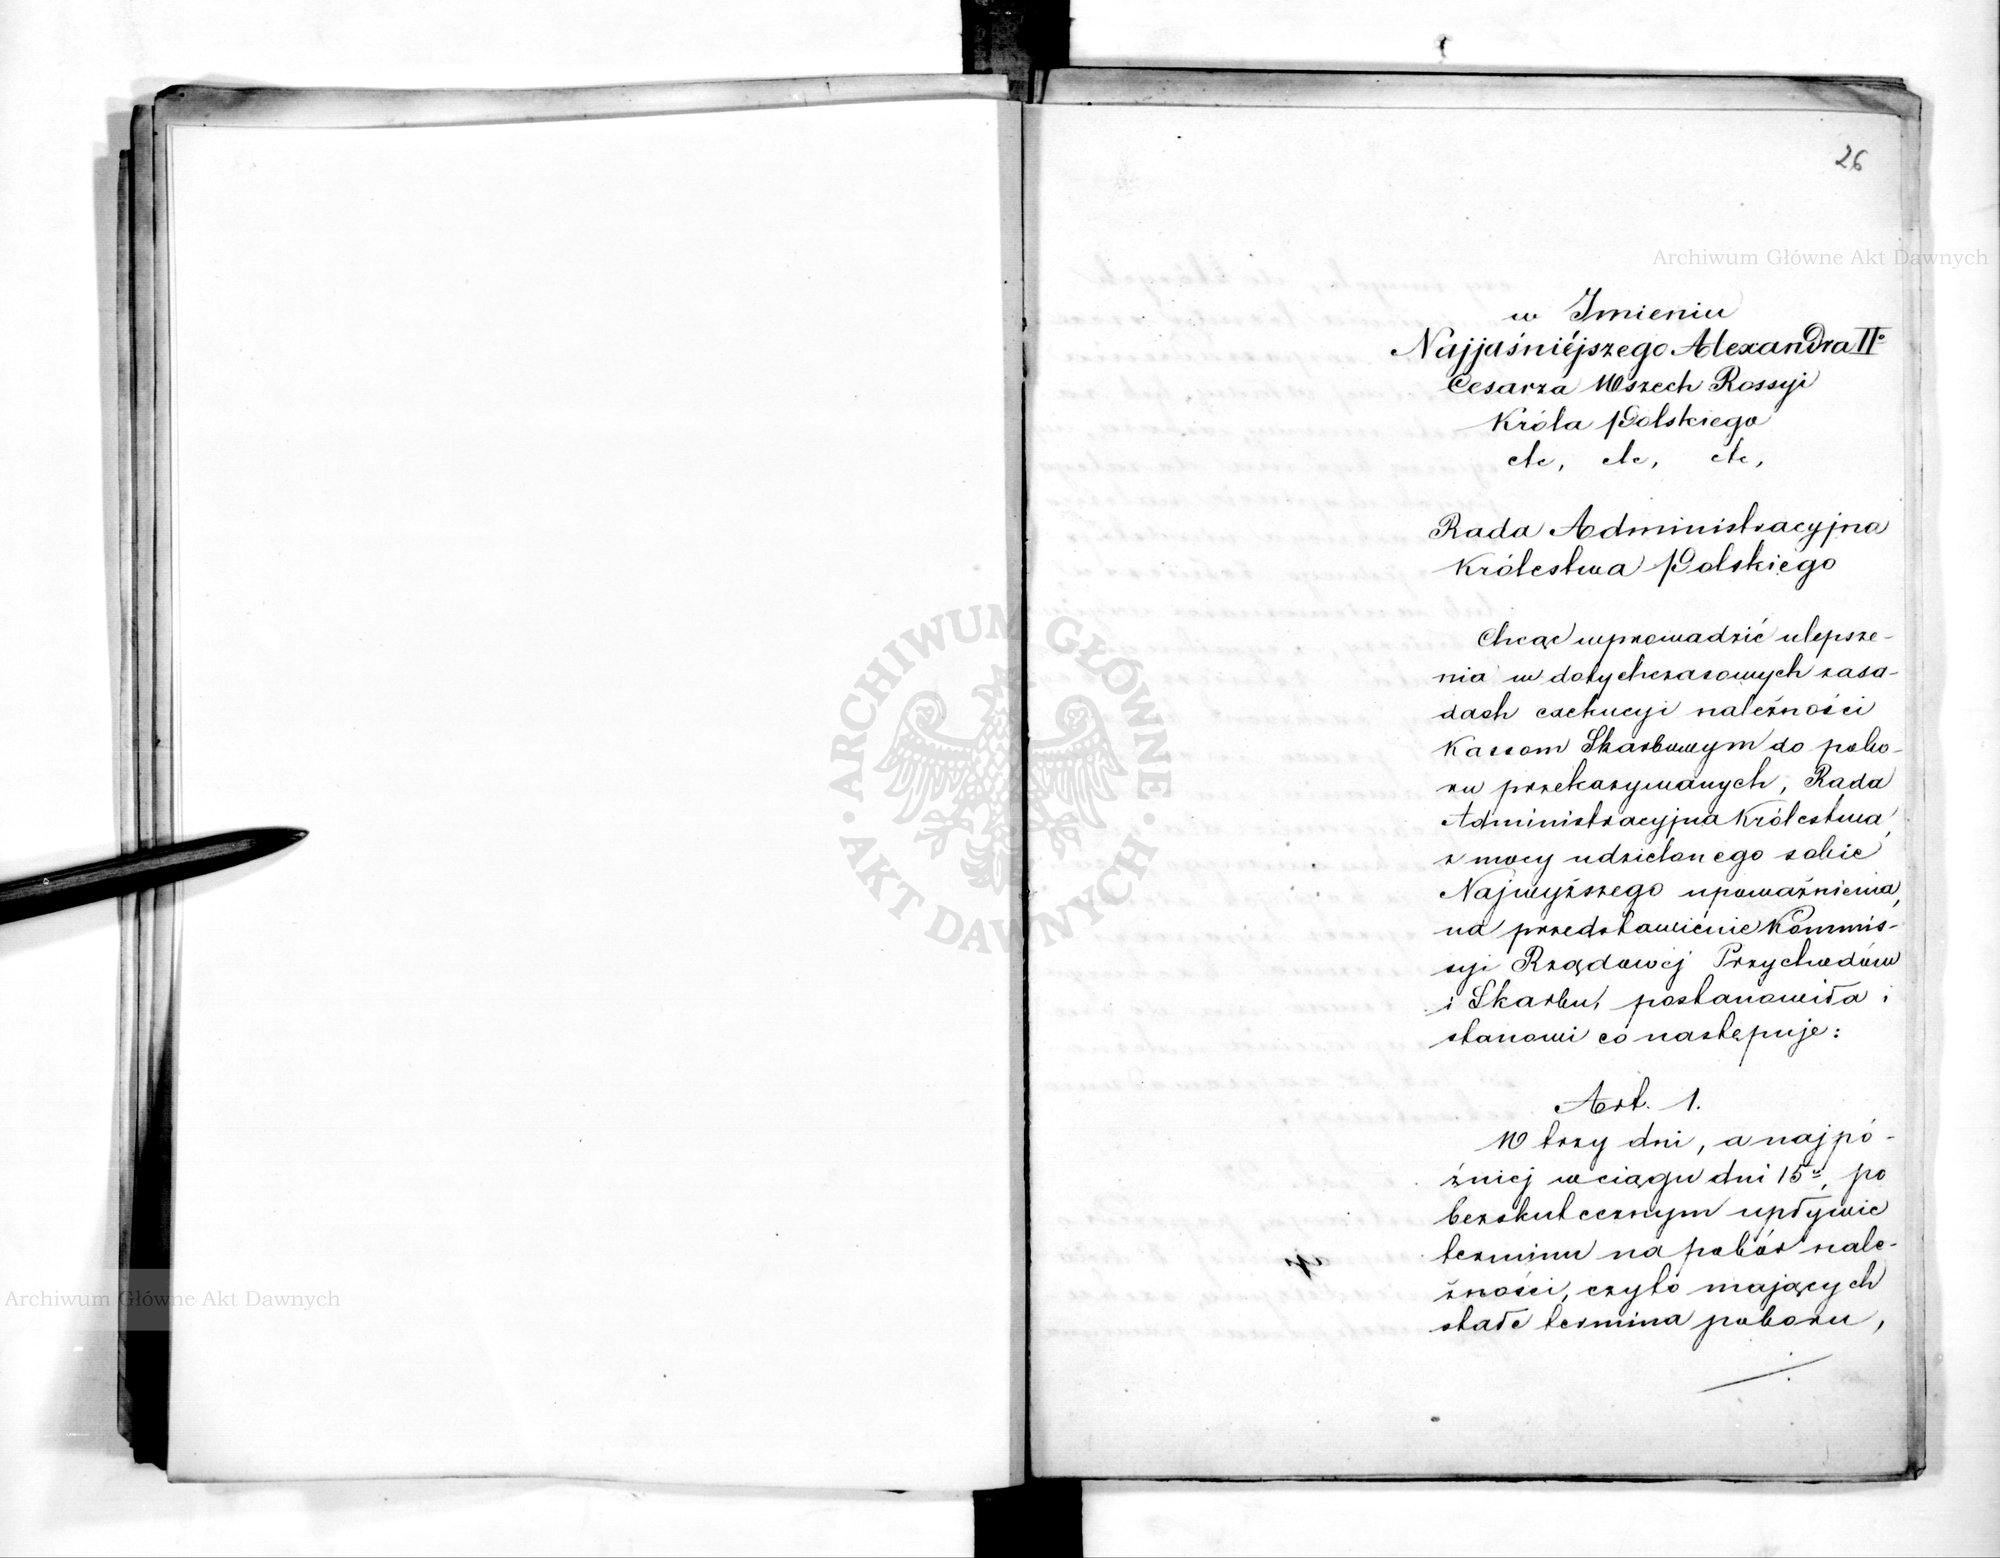 26
w Imieniu
Najjaśniéjszego Alexandra IIo
Cesarza Wszech Rossyi
Króla Polskiego
etc, etc, etc,
Rada Administracyjna
Królestwa Polskiego
Chcąc wprowadzić ulepsze-
nia w dotychczasowych zasa-
dach exekucyi należności
Kassom Skarbowym do pobo-
ru przekazywanych, Rada
Administracyjna Królestwa
z mocy udzielonego sobie
Najwyższego upoważnienia,
na przedstawienie Kommis-
syi Rządowéj Przychodów
i Skarbu, postanowiła i
stanowi co następuje:
Art. 1.
W trzy dni, a najpó-
źniej w ciągu dni 15u, po
bezskutecznym upływie
terminu na pobór nale-
żności, czyto mających
stałe termina poboru,
Archiwum Główne Akt Dawnych
Archiwum Główne Akt Dawnych
ARCHIWUM GŁÓWNE
· AKT DAWNYCH ·